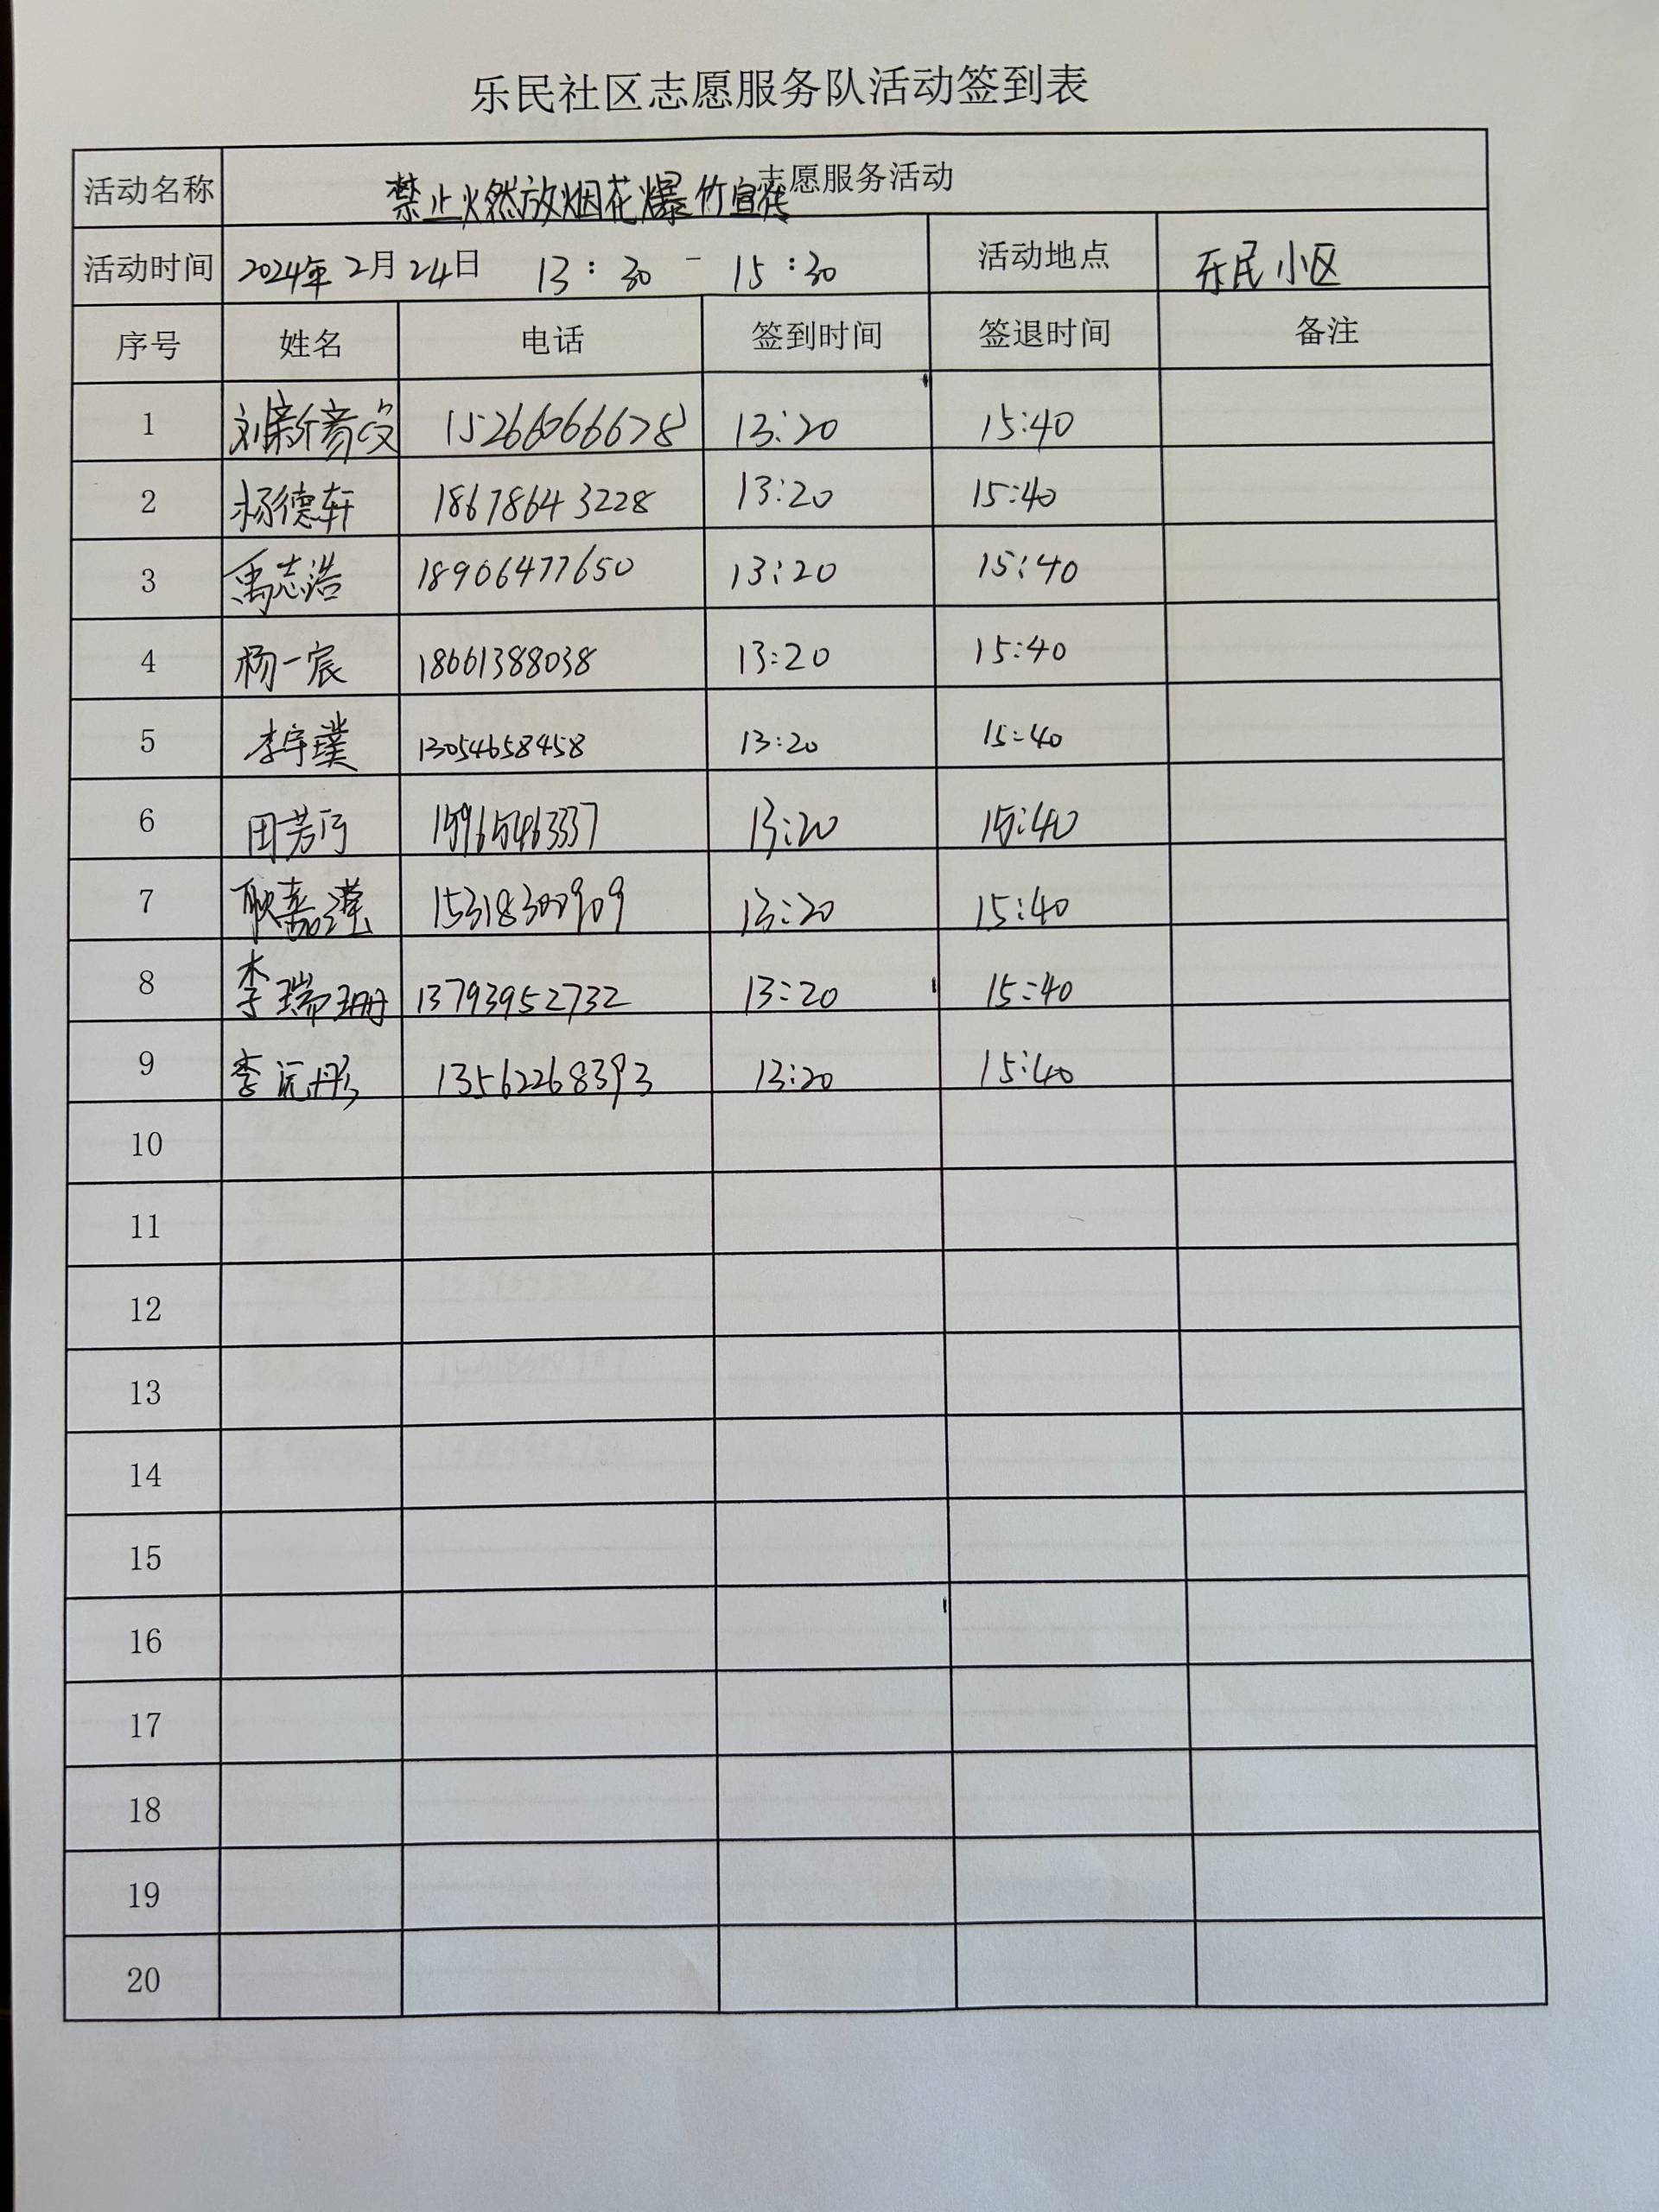 乐民社区志愿服务队活动签到表
活动名称 禁止燃放烟花爆竹宣传志愿服务活动
活动时间 2024年2月24日 13:30-15:30 活动地点 乐民小区
序号 姓名 电话 签到时间 签退时间 备注
1 15266066678 13:20 15:40
2 杨德轩 18678643228 13:20 15:40
3 禹志浩 18906477650 13:20 15:40
4 杨一宸 18661388038 13:20 15:40
5 李宇璞 13054658458 13:20 15:40
6 田芳 15965463337 13:20 15:40
7 耿嘉滢 15318300909 13:20 15:40
8 李瑞珊 13793952732 13:20 15:40
9 李沅彤 13562268393 13:20 15:40
10
11
12
13
14
15
16
17
18
19
20